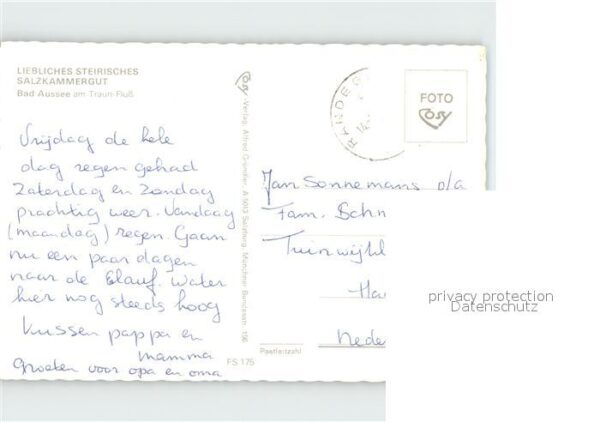 LIEBLICHES STEIRISCHES
SALZKAMMERGUT
Bad Aussee am Traun-Fluß
Vrijdag de hele
dag regen gehad
Zaterdag en Zondag
prachtig weer. Vandaag
(maandag) regen. Gaan
nu een paar dagen
naar de Elauf. Water
hier nog steeds hoog
Kussen pappa en
mamma
Groeten voor opa en oma
Cosy-Verlag, Alfred Gründler, A 5013 Salzburg, Münchner Bundesstr. 156
FS 175
RANDEG
FOTO
COSY
Jan Sonnemans p/a
Fam. Schn
Tuinwijkl
Ha
Nede
Postleitzahl
privacy protection
Datenschutz